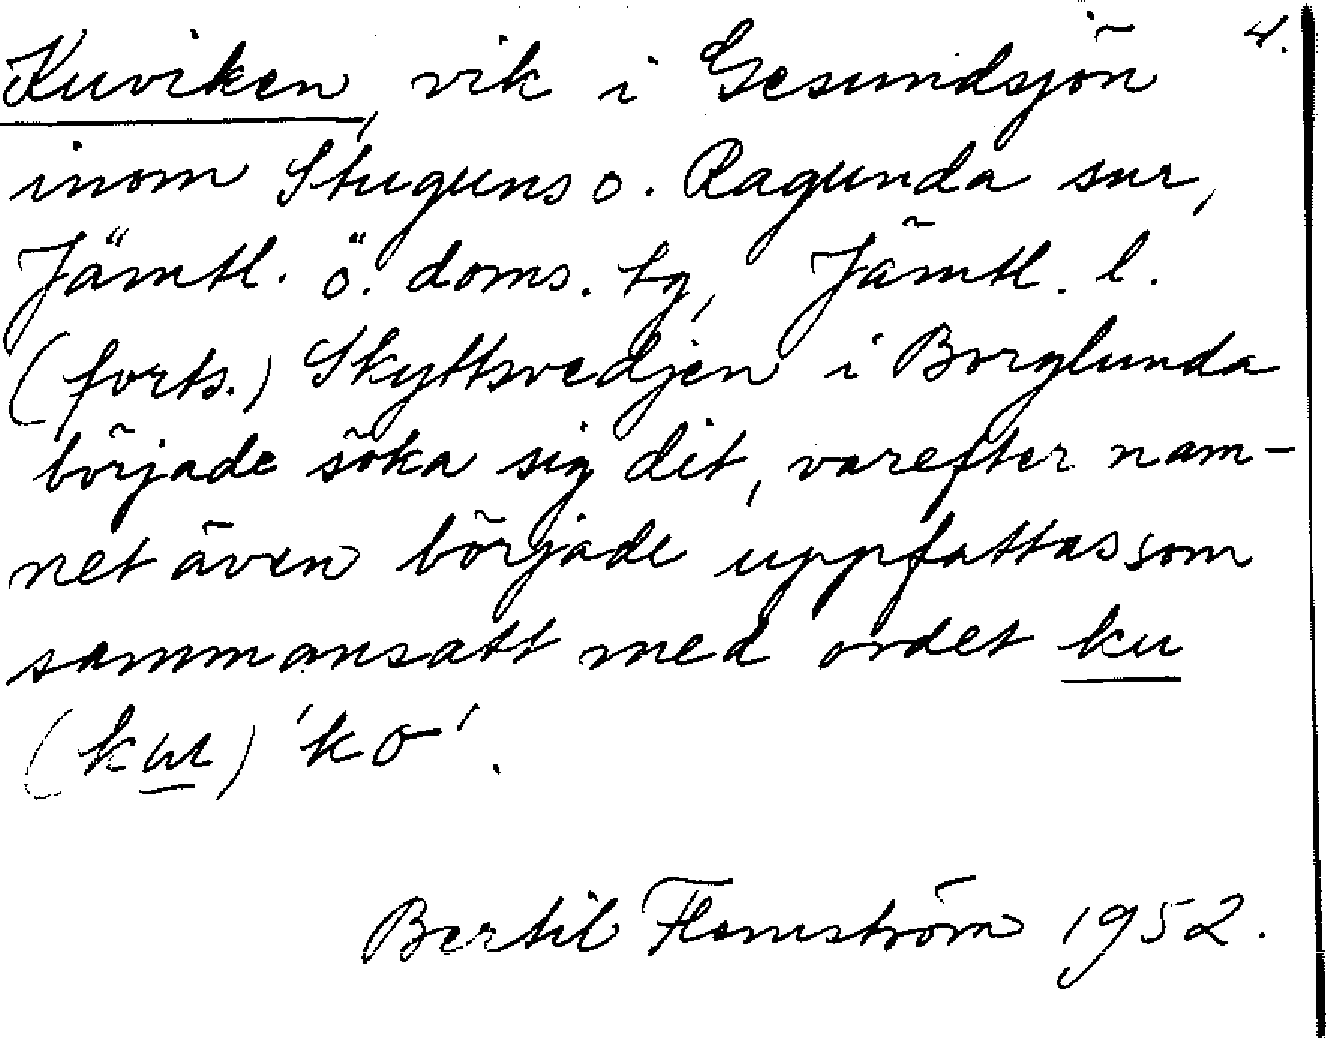 Kuviken, vik i Gesundsjön 4.
inom Stuguns o. Ragunda snr,
Jämtl. ö. doms. tg, Jämtl. l.
(forts.) Skyttsvedjen i Borglunda
började söka sig dit, varefter nam-
net även började uppfattas som
sammansatt med ordet ku
(kuɩ) 'ko'.
Bertil Flemström 1952.